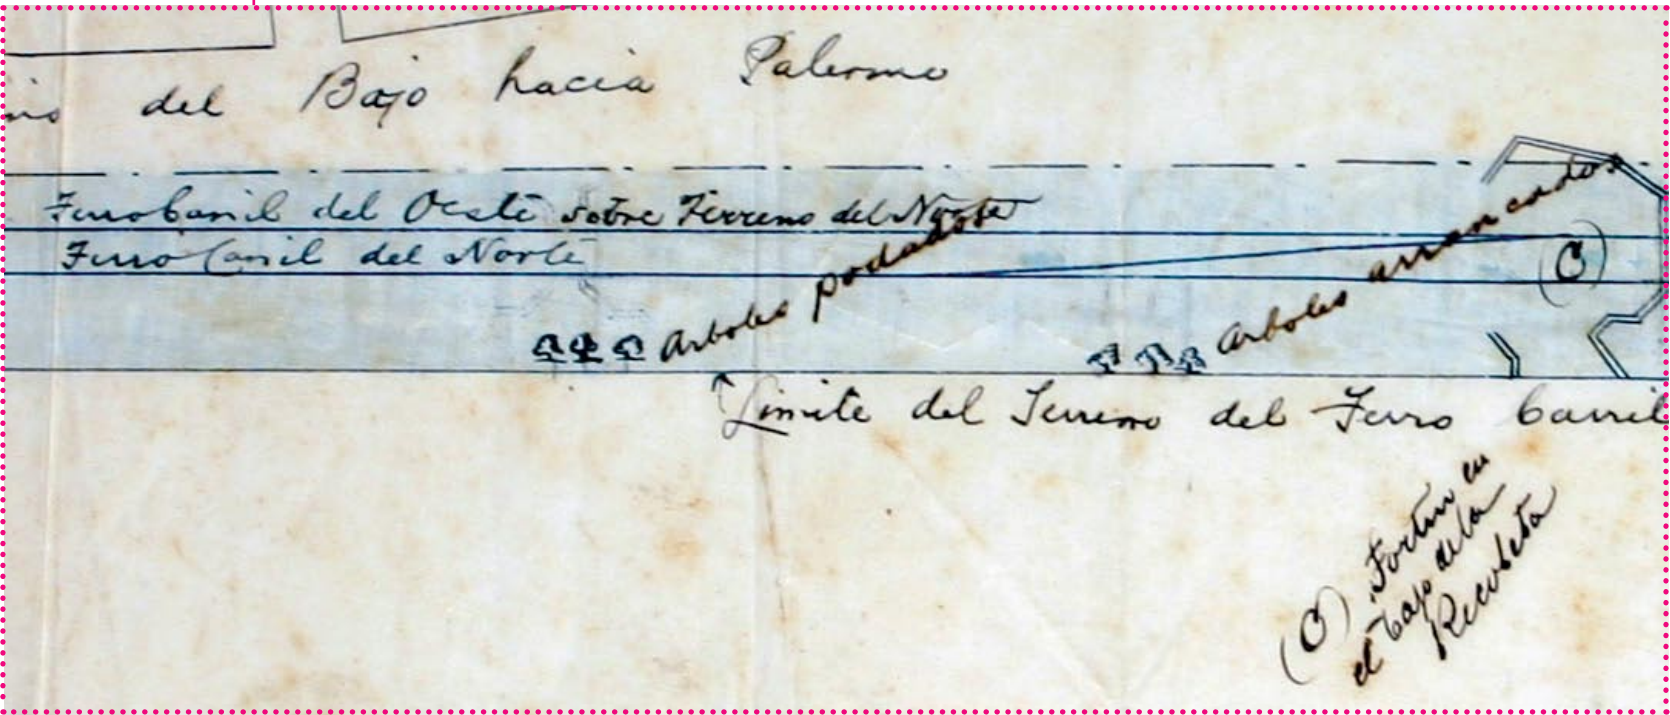 del Bajo hacia Palermo
Ferro Carril del Oeste sobre Terreno del Norte
Ferro Carril del Norte
Arboles podados
Arboles arrancados
(C)
Limite del Terreno del Ferro Carril
(C) Fortin en
el bajo de la
Recoleta